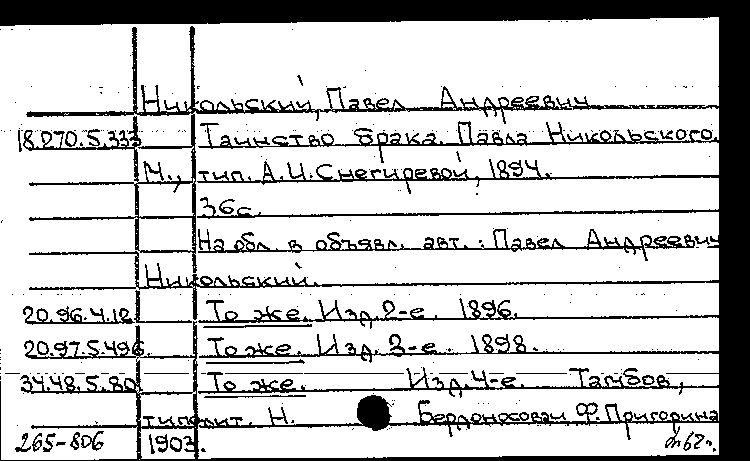 Никольский, Павел Андреевич
18.270.5.333 Таинство брака. Павла Никольского.
М., тип. А.И. Снегиревой, 1894.
36с.
На обл. в объявл. авт.: Павел Андреевич
Никольский.
20.96.4.12 То же. Изд. 2-е. 1896.
20.97.5.496. То же. Изд. 3-е. 1898.
34.48.5.80 То же. Изд. 4-е. Тамбов,
типолит. Н. Бердоносова и Ф. Пригорина
265-806 1903.